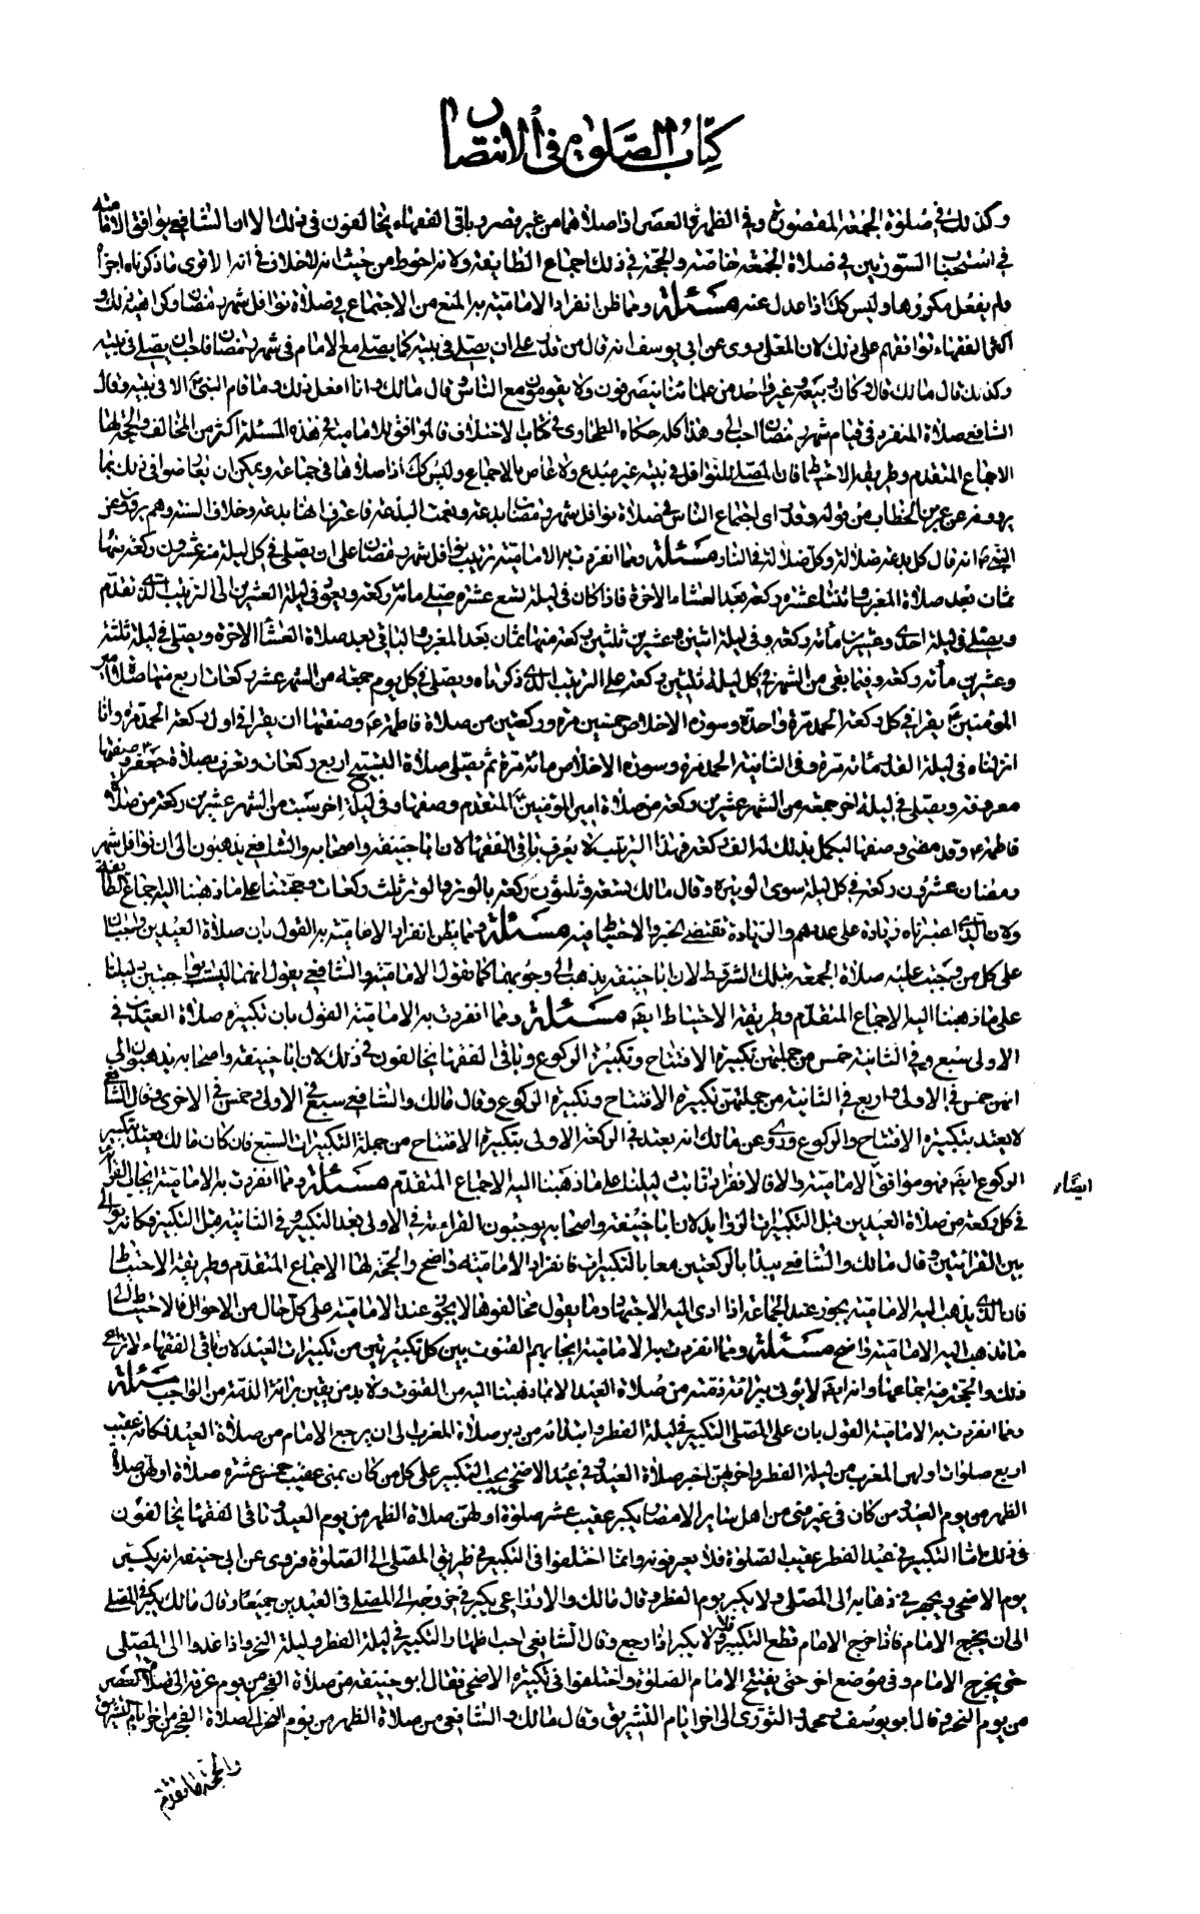 كتاب الصلوة في الانتصار
وكذلك في صلوة الجمعة المقصورة وفي الظهر والعصر اذا صلاهما من غير قصر وباقي الفقهاء يخالفون في ذلك الا ان الشافعي يوافق الامامية
في استحباب السورتين في صلاة الجمعة خاصة والحجة في ذلك اجماع الطايفة ولانه احوط من حيث انه لاخلاف في انه اذا قرأ ما ذكرناه اجزأ
ولم يفعل مكروها وليس كك اذا عدل عنه مسئلة ومما ظن انفراد الامامية به المنع من الاجتماع في صلاة نوافل شهر رمضان وكراهية ذلك و
اكثر الفقهاء يوافقهم على ذلك لان المعلى روى عن ابي يوسف انه قال من قدر على ان يصلي في بيته كما يصلي مع الامام في شهر رمضان فاحب ان يصلي في بيته
وكذلك قال مالك قال وكان ربيعة وغير واحد من علمائنا ينصرفون ولا يقومون مع الناس وقال مالك وانا افعل ذلك وما قام النبي الا في بيته وقال
الشافعي صلاة المنفرد في قيام شهر رمضان احب الي وهذا كله حكاه الطحاوي في كتاب الاختلاف فالموافق للامامية في هذه المسئلة اكثر من المخالف والحجة لها
الاجماع المتقدم وطريقة الاحتياط فان المصلي للنوافل في بيته غير مبدع ولا عاص بالاجماع وليس كك اذا صلاها في جماعة ويمكن ان يعارضوا في ذلك بما
يروونه عن عمر بن الخطاب من قوله وقد راى اجتماع الناس في صلاة نوافل شهر رمضان بدعة ونعمت البدعة فاعترف بانها بدعة وخلاف السنة وهم يروون عن
النبي انه قال كل بدعة ضلالة وكل ضلالة في النار مسئلة ومما انفردت به الامامية ترتيب نوافل شهر رمضان على ان يصلي في كل ليلة منه عشرون ركعة منها
ثمان بعد صلاة المغرب واثنتا عشرة ركعة بعد العشاء الاخرة فاذا كان في ليلة تسع عشرة صلى مائة ركعة ويعود في ليلة العشرين الى الترتيب الذي تقدم
ويصلي في ليلة احدى وعشرين مأة ركعة وفي ليلة اثنين وعشرين ثلثين ركعة منها ثمان بعد المغرب والباقي بعد صلاة العشاء الاخرة ويصلي في ليلة ثلثة
وعشرين مأة ركعة وفيما بقي من الشهر في كل ليلة ثلثين ركعة على الترتيب الذي ذكرناه ويصلي في كل يوم جمعة من الشهر عشر ركعات اربع منها صلاة امير
المؤمنين يقرأ في كل ركعة الحمد مرة واحدة وسورة الاخلاص خمسين مرة وركعتين من صلاة فاطمة وصفتها ان يقرأ في اول ركعة الحمد مرة وانا
انزلناه في ليلة القدر مائة مرة وفي الثانية الحمد مرة وسورة الاخلاص مائة مرة ثم يصلي صلاة التسبيح اربع ركعات وتعرف بصلاة جعفر وصفتها
معروفة ويصلي في ليلة اخر جمعة من الشهر عشرين ركعة من صلاة امير المؤمنين المتقدم وصفها وفي ليلة اخر سبت من الشهر عشرين ركعة من صلاة
فاطمة وقد مضى وصفها ليكمل بذلك له الف ركعة فهذا الترتيب لا يعرف باقي الفقهاء لان ابا حنيفة واصحابه والشافعي يذهبون الى ان نوافل شهر
رمضان عشرون ركعة في كل ليلة سوى الوتر وقال مالك تسعة وثلثون ركعة بالوتر والوتر ثلث ركعات وحجتنا على ما ذهبنا اليه اجماع الطائفة
ولان الذي اعتبرناه زيادة على عددهم والزيادة تقتضي الخير والاحتياط فيه مسئلة ومما يظن انفراد الامامية به القول بان صلاة العيدين واجبتان
على كل من وجبت عليه صلاة الجمعة بتلك الشرائط لان ابا حنيفة يذهب الى وجوبهما كما تقول الامامية والشافعي يقول انهما ليستا بواجبتين دليلنا
على ما ذهبنا اليه الاجماع المتقدم وطريقة الاحتياط ايضا مسئلة ومما انفردت به الامامية القول بان تكبيرة صلاة العيدين في
الاولى سبع وفي الثانية خمس من جملتهن تكبيرة الافتتاح وتكبيرة الركوع وباقي الفقهاء يخالفون في ذلك لان ابا حنيفة واصحابه يذهبون الى
انهن خمس في الاولى واربع في الثانية من جملتهن تكبيرة الافتتاح وتكبيرة الركوع وقال مالك والشافعي سبع في الاولى وخمس في الاخرى وقال الشافعي
لا يعتد بتكبيرة الافتتاح والركوع وروى عن مالك انه يعتد في الركعة الاولى بتكبيرة الافتتاح من جملة التكبيرات السبع فان كان مالك يعتد بتكبير
الركوع ايضا فهو موافق الامامية والا فالانفراد ثابت دليلنا على ما ذهبنا اليه الاجماع المتقدم مسئلة ومما انفردت به الامامية ايجاب القراءة
ايضا
في كل ركعة من صلاة العيدين قبل التكبيرات الزوايد لان ابا حنيفة واصحابه يوجبون القراءة في الاولى بعد التكبير وفي الثانية قبل التكبير فكانه يوالي
بين القرائتين وقال مالك والشافعي يبدأ بالركعتين معا بالتكبيرات فانفراد الامامية واضح والحجة لها الاجماع المتقدم وطريقة الاحتياط
فان الذي يذهب اليه الامامية يجوز عند الجماعة اذا ادى اليه الاجتهاد وما يقول مخالفوها لا يجوز عند الامامية على كل حال من الاحوال فالاحتياط الى
ما تذهب اليه الامامية واضح مسئلة ومما انفردت به الامامية ايجابهم القنوت بين كل تكبيرتين من تكبيرات العيد لان باقي الفقهاء لا يراعي
ذلك والحجة فيه اجماعنا وانه ايضا لا يؤتى ببرائة ذمته من صلاة العيد الا بما ذهبنا اليه من القنوت ولا بد من يقين برائة الذمة من الواجب مسئلة
ومما انفردت به الامامية القول بان على المصلي التكبير في ليلة الفطر وابتداؤه من دبر صلاة المغرب الى ان يرجع الامام من صلاة العيد فكانه عقيب
اربع صلوات اولهن المغرب من ليلة الفطر واخرهن اخير صلاة العيد وفي عيد الاضحى يجب التكبير على كل من كان بمنى عقيب خمس عشرة صلاة اولهن صلاة
الظهر من يوم العيد ومن كان في غير منى من اهل سائر الامصار يكبر عقيب عشر صلوة اولهن صلاة الظهر من يوم العيد وباقي الفقهاء يخالفون
في ذلك واما التكبير في عيد الفطر عقيب الصلوة فلا يعرفونه وانما اختلفوا في التكبير في طريق المصلي الى الصلوة فروى عن ابي حنيفة انه يكبر
يوم الاضحى ويجهر في ذهابه الى المصلى ولا يكبر يوم الفطر وقال مالك والاوزاعي يكبر في خروجه الى المصلى في العيدين جميعا وقال مالك يكبر في المصلى
الى ان يخرج الامام فاذا خرج الامام قطع التكبير ولا يكبر اذا رجع وقال الشافعي احب اظهار التكبير في ليلة الفطر وليلة النحر واذا غدوا الى المصلى
حتى يخرج الامام وفي موضع اخر حتى يفتتح الامام الصلوة واختلفوا في تكبيرة الاضحى فقال ابو حنيفة من صلاة الفجر من يوم عرفة الى صلاة العصر
من يوم النحر وقال ابو يوسف ومحمد والثوري الى اخر ايام التشريق وقال مالك والشافعي من صلاة الظهر من يوم النحر الى صلاة الفجر من اخر ايام التشريق
والحجة ما تقدم